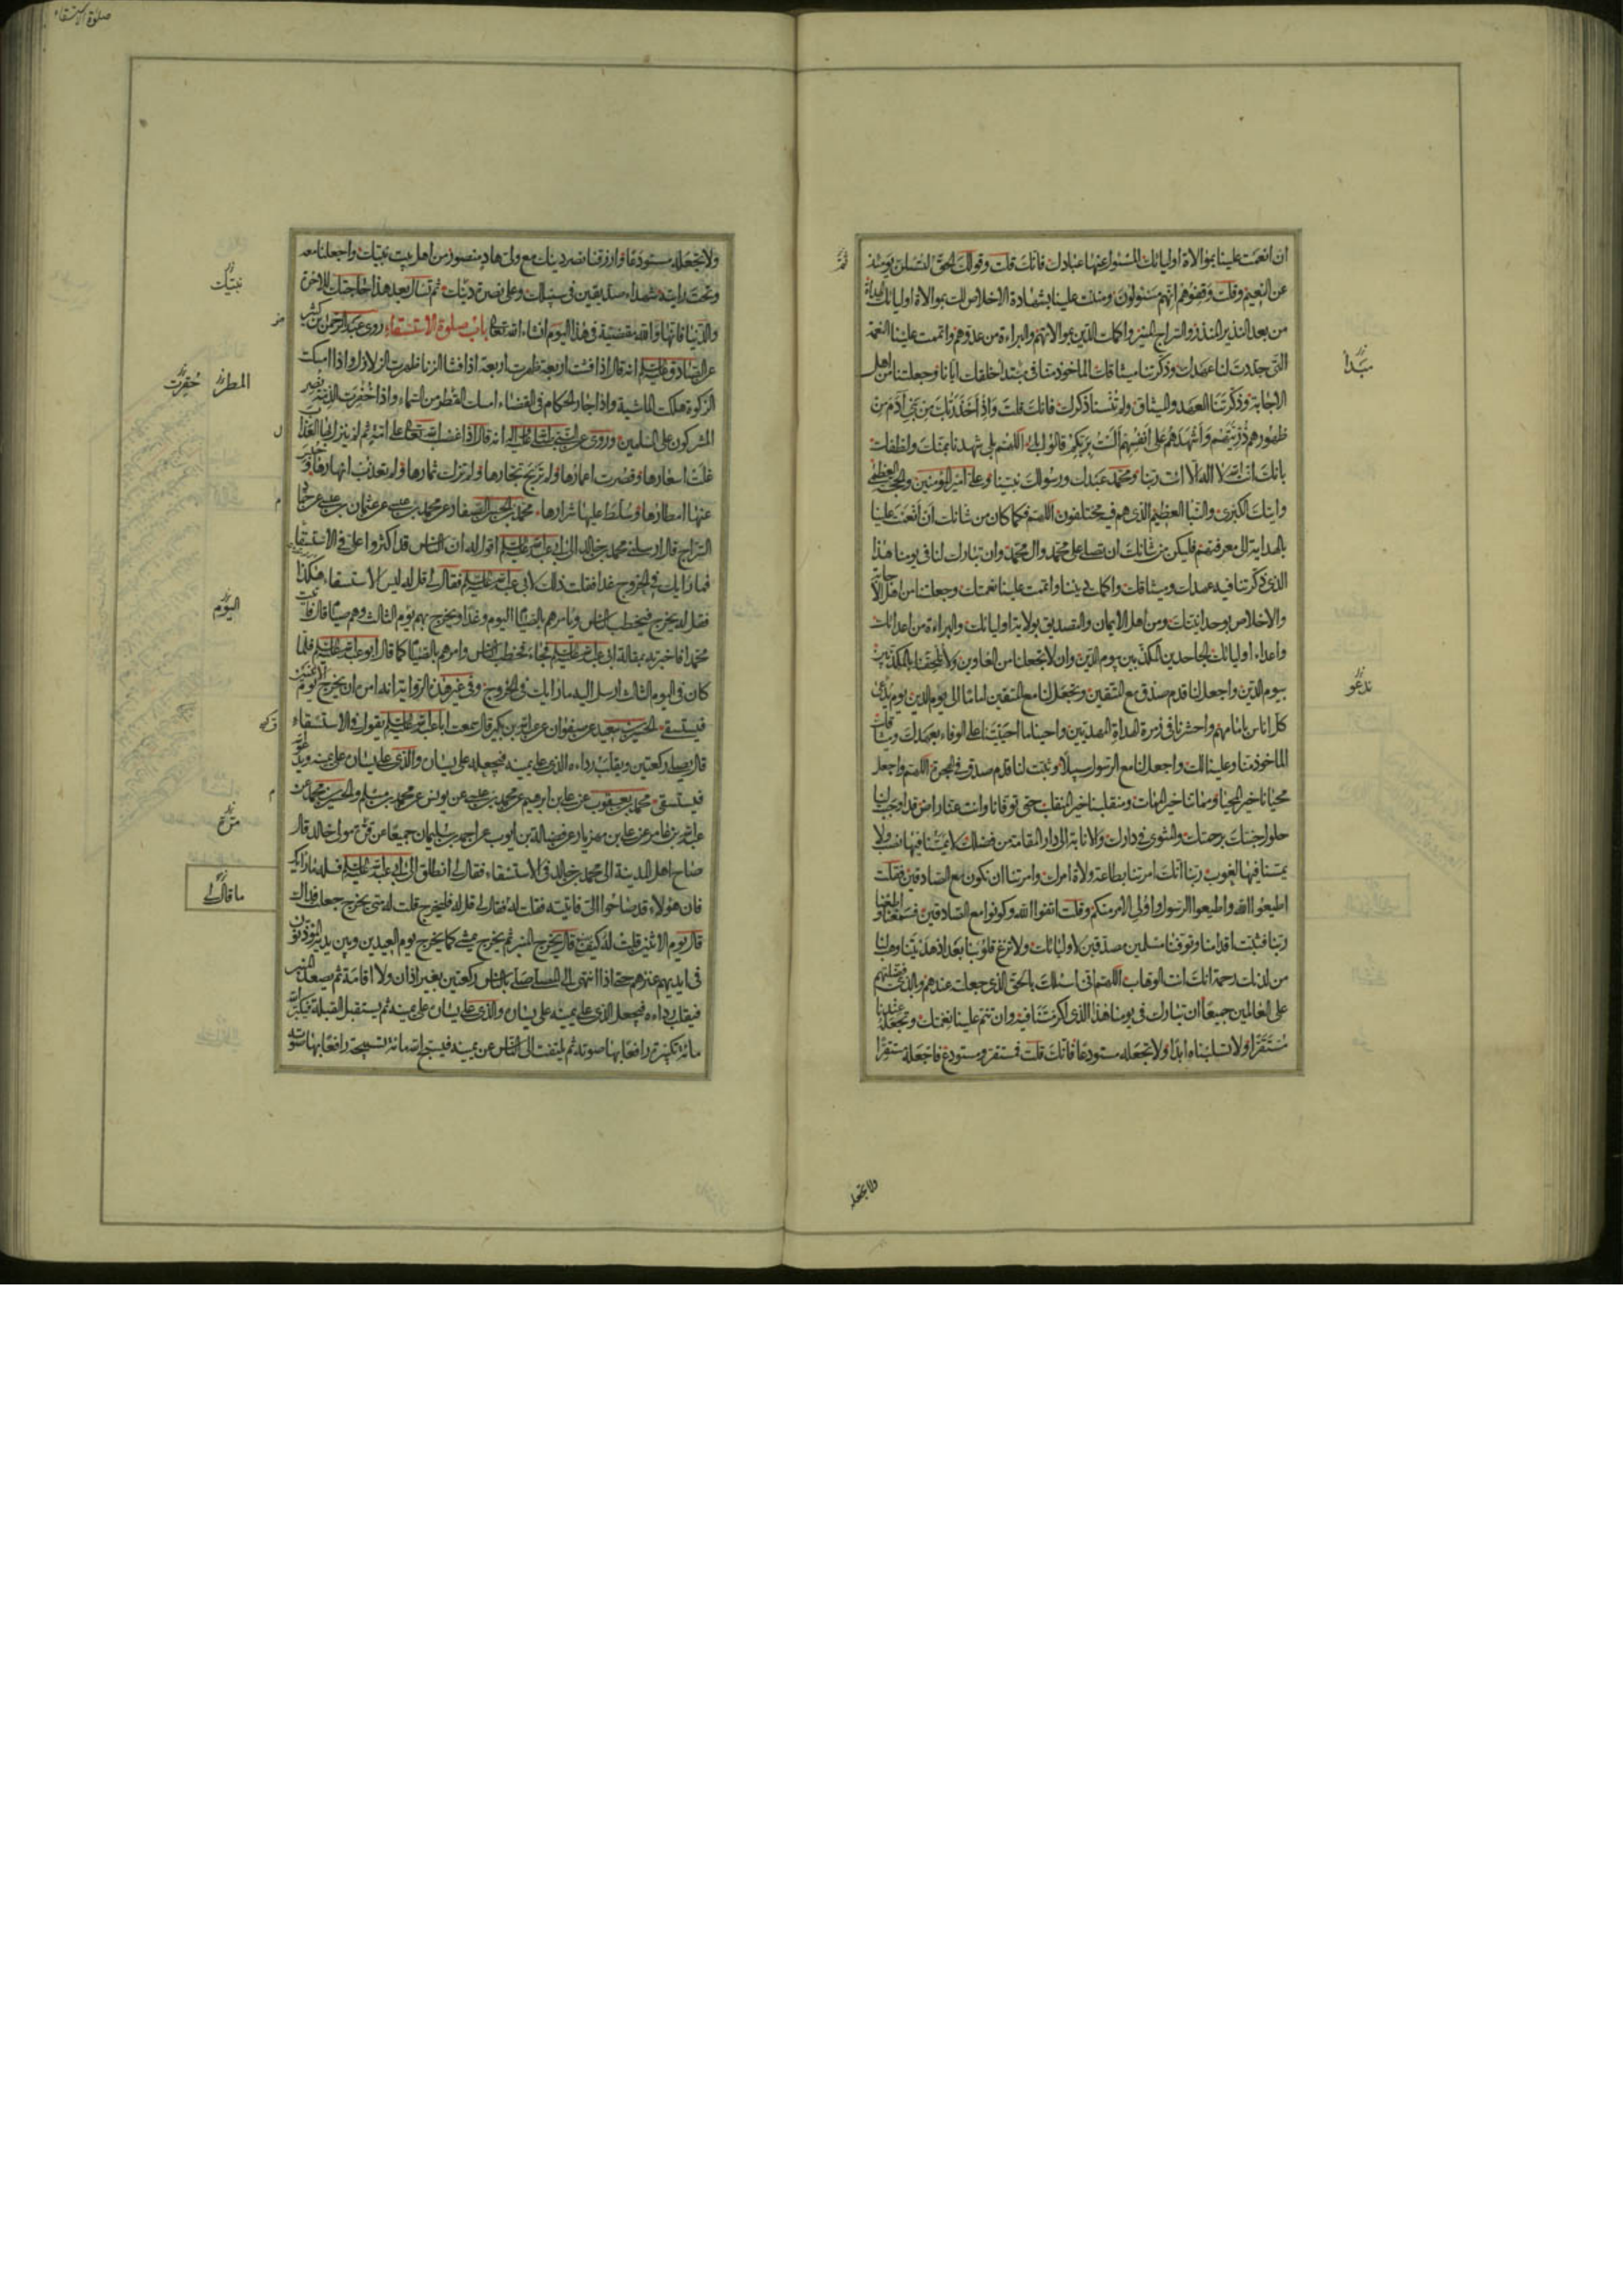 ان انعمت علينا بموالاة اوليائك المسئول عنها عبادك فانك قلت وقولك الحق لتسئلن يومئذ
ثم
عن النعيم وقلت وقفوهم انهم مسئولون ومننت علينا بشهادة الاخلاص لك بموالاة اوليائك الهداة
من بعد النذير المنذر والسراج المنير واكملت الدين بموالاتهم والبراءة من عدوهم واتممت علينا النعمة
التى جددت لنا عهدك وذكرتنا ميثاقك الماخوذ منا فى مبتدأ خلقك ايانا وجعلتنا من اهل
مبدأ
الاجابة وذكرتنا العهد والميثاق ولم تنسنا ذكرك فانك قلت واذ اخذ ربك من بنى آدم من
ظهورهم ذريتهم واشهدهم على انفسهم الست بربكم قالوا بلى اللهم بلى شهدنا بمنك ولطفك
بانك انت الله لا اله الا انت ربنا ومحمد عبدك ورسولك نبينا وعلى امير المؤمنين والحجة العظمى
وايتك الكبرى والنبأ العظيم الذى هم فيه مختلفون اللهم فكما كان من شانك ان انعمت علينا
بالهداية الى معرفتهم فليكن من شانك ان تصلى على محمد وال محمد وان تبارك لنا فى يومنا هذا
الذى ذكرتنا فيه عهدك وميثاقك واكملت ديننا واتممت علينا نعمتك وجعلتنا من اهل الاجابة
والاخلاص بوحدانيتك ومن اهل الايمان والتصديق بولاية اوليائك والبراءة من اعدائك
واعداء اوليائك الجاحدين المكذبين بيوم الدين وان لا تجعلنا من الغاوين ولا تلحقنا بالمكذبين
بيوم الدين واجعل لنا قدم صدق مع المتقين وتجعل لنا مع المتقين اماما الى يوم الدين يوم يدعى
ندعو
كل اناس بامامهم واحشرنا فى زمرة الهداة المهديين واحينا ما احييتنا على الوفاء بعهدك وميثاقك
الماخوذ منا وعلينا لك واجعل لنا مع الرسول سبيلا وثبت لنا قدم صدق فى الهجرة اللهم واجعل
محيانا خير المحيا ومماتنا خير الممات ومنقلبنا خير المنقلب حتى توفانا وانت عنا راض قد اوجبت لنا
حلول جنتك برحمتك والمثوى فى دارك والانابة الى دار المقامة من فضلك لا يمسنا فيها نصب ولا
يمسنا فيها لغوب ربنا انك امرتنا بطاعة ولاة امرك وامرتنا ان نكون مع الصادقين فقلت
اطيعوا الله واطيعوا الرسول واولى الامر منكم وقلت اتقوا الله وكونوا مع الصادقين فسمعنا واطعنا
ربنا فثبت اقدامنا وتوفنا مسلمين مصدقين لاوليائك ولا تزغ قلوبنا بعد اذ هديتنا وهب لنا
من لدنك رحمة انك انت الوهاب اللهم انى اسئلك بالحق الذى جعلت عندهم وبالذى فضلتهم
على العالمين جميعا ان تبارك فى يومنا هذا الذى اكرمتنا فيه وان تتم علينا نعمتك وتجعله عندنا
مستقرا ولا تسلبناه ابدا ولا تجعله مستودعا فانك قلت فمستقر ومستودع فاجعله مستقرا
ولا تجعله
صلوة الاستسقاء
ولا تجعله مستودعا وارزقنا نصر دينك مع ولى هاد منصور من اهل بيت نبيك واجعلنا معه
نبيك
وتحت رايته شهداء صديقين فى سبيلك وعلى نصرة دينك ثم تسال بعد هذا حاجتك للاخرة
والدنيا فانها والله مقضية فى هذا اليوم انشاء الله تعالى باب صلوة الاستسقاء روى عبد الرحمن بن كثير
عن الصادق عليه السلم انه قال اذا فشت اربعة ظهرت اربعة اذا فشا الزنا ظهرت الزلازل واذا امسكت
الزكوة هلكت الماشية واذا جار الحكام فى القضاء امسك القطر من السماء واذا خفرت الذمة نصر
المطر
خفرت
المشركون على المسلمين وروى عن النبى صلى الله عليه واله انه قال اذا غضب الله تعالى على امة ثم لم ينزل بها العذاب
غلت اسعارها وقصرت اعمارها ولم تربح تجارها ولم تزك ثمارها ولم تعذب انهارها وحبس
عنها امطارها وسلط عليها شرارها محمد بن الحسن الصفار عن محمد بن عيسى عن عثمان بن عيسى عن حماد
السراج قال ارسلنى محمد بن خالد الى ابى عبد الله عليه السلم اقول له ان الناس قد اكثروا على فى الاستسقاء
فما رايك فى الخروج غدا فقلت ذلك لابى عبد الله عليه السلم فقال لى قل له ليس الاستسقاء هكذا
فقل له يخرج فيخطب الناس ويامرهم بالصيام اليوم وغدا ويخرج بهم يوم الثالث وهم صيام قال فاتيت
اليوم
محمدا فاخبرته بمقالة ابى عبد الله عليه السلم فجاء فخطب الناس وامرهم بالصيام كما قال ابو عبد الله عليه السلم فلما
كان فى اليوم الثالث ارسل اليه ما رايك فى الخروج وفى غير هذه الرواية انه امره ان يخرج يوم الاثنين
فيستسقى الحسين بن سعيد عن صفوان عن عبد الله بن بكير قال سمعت ابا عبد الله عليه السلم يقول فى الاستسقاء
قال يصلى ركعتين ويقلب رداءه الذى على يمينه فيجعله على يساره والذى على يساره على يمينه ويدعو الله
فيستسقى محمد بن يعقوب عن على بن ابرهيم عن محمد بن عيسى عن يونس عن محمد بن مسلم والحسين بن محمد عن
عبد الله بن عامر عن على بن مهزيار عن فضالة بن ايوب عن احمد بن سليمان جميعا عن مرة مولى خالد قال
مرة
صاح اهل المدينة الى محمد بن خالد فى الاستسقاء فقال لى انطلق الى ابى عبد الله عليه السلم فسله ما رايك
فان هؤلاء قد صاحوا الى فاتيته فقلت له فقال لى قل له فليخرج قلت له متى يخرج جعلت فداك
ما قال لى
قال يوم الاثنين قلت له كيف يصنع قال يخرج المنبر ثم يخرج يمشى كما يخرج يوم العيدين وبين يديه المؤذنون
فى ايديهم عنزهم حتى اذا انتهى الى المصلى صلى بالناس ركعتين بغير اذان ولا اقامة ثم يصعد المنبر
فيقلب رداءه فيجعل الذى على يمينه على يساره والذى على يساره على يمينه ثم يستقبل القبلة فيكبر الله
مائة تكبيرة رافعا بها صوته ثم يلتفت الى الناس عن يمينه فيسبح الله مائة تسبيحة رافعا بها صوته